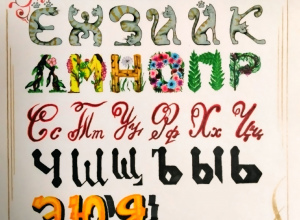 ЕЖЗИЙК
ЛМНОПР
Сс Тт Уу Фф Хх Цц
ЧШЩЪЫЬ
ЭЮЯ